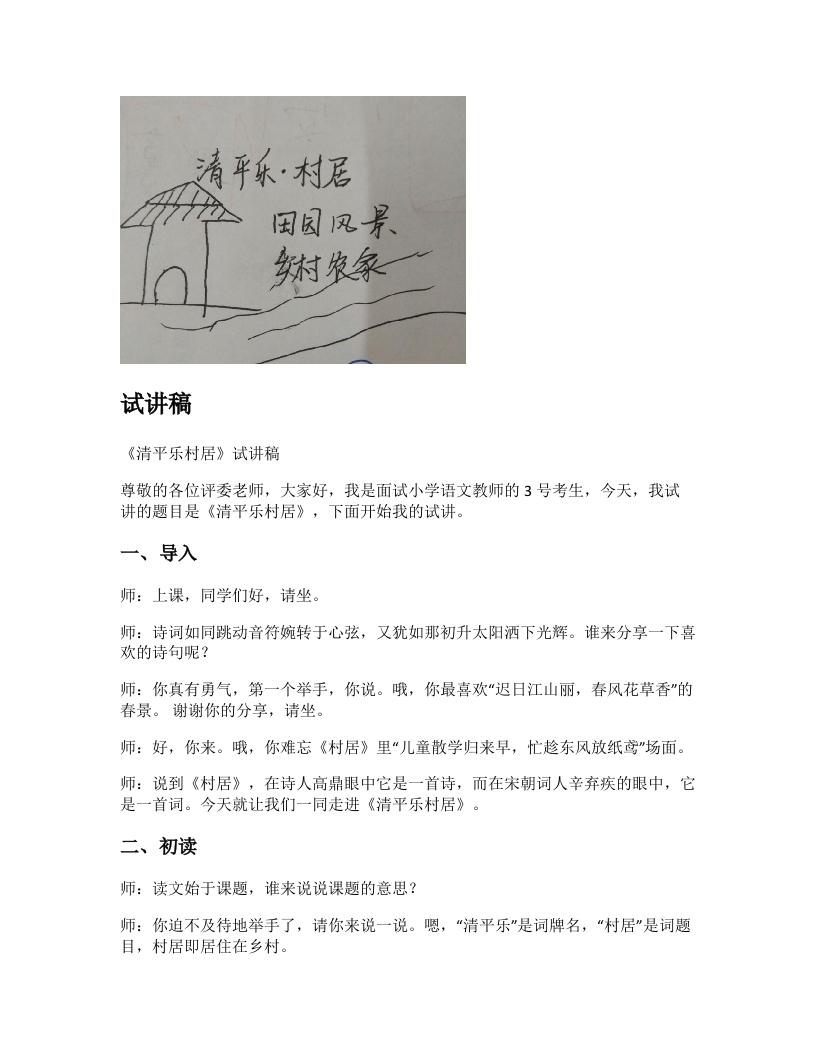 清平乐·村居
田园风景
乡村农家
试讲稿
《清平乐村居》试讲稿
尊敬的各位评委老师，大家好，我是面试小学语文教师的 3 号考生，今天，我试
讲的题目是《清平乐村居》，下面开始我的试讲。
一、导入
师：上课，同学们好，请坐。
师：诗词如同跳动音符婉转于心弦，又犹如那初升太阳洒下光辉。谁来分享一下喜
欢的诗句呢？
师：你真有勇气，第一个举手，你说。哦，你最喜欢“迟日江山丽，春风花草香”的
春景。 谢谢你的分享，请坐。
师：好，你来。哦，你难忘《村居》里“儿童散学归来早，忙趁东风放纸鸢”场面。
师：说到《村居》，在诗人高鼎眼中它是一首诗，而在宋朝词人辛弃疾的眼中，它
是一首词。今天就让我们一同走进《清平乐村居》。
二、初读
师：读文始于课题，谁来说说课题的意思？
师：你迫不及待地举手了，请你来说一说。嗯，“清平乐”是词牌名，“村居”是词题
目，村居即居住在乡村。